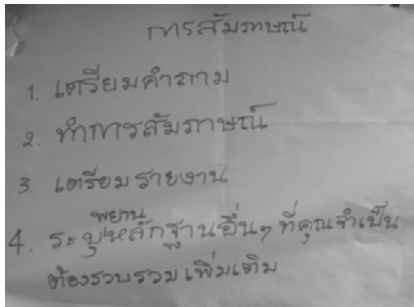 การสัมภาษณ์
1. เตรียมคำถาม
2. ทำการสัมภาษณ์
3. เตรียมรายงาน
4. ระบุพยานหลักฐานอื่นๆ ที่คุณจำเป็น
ต้องรวบรวมเพิ่มเติม